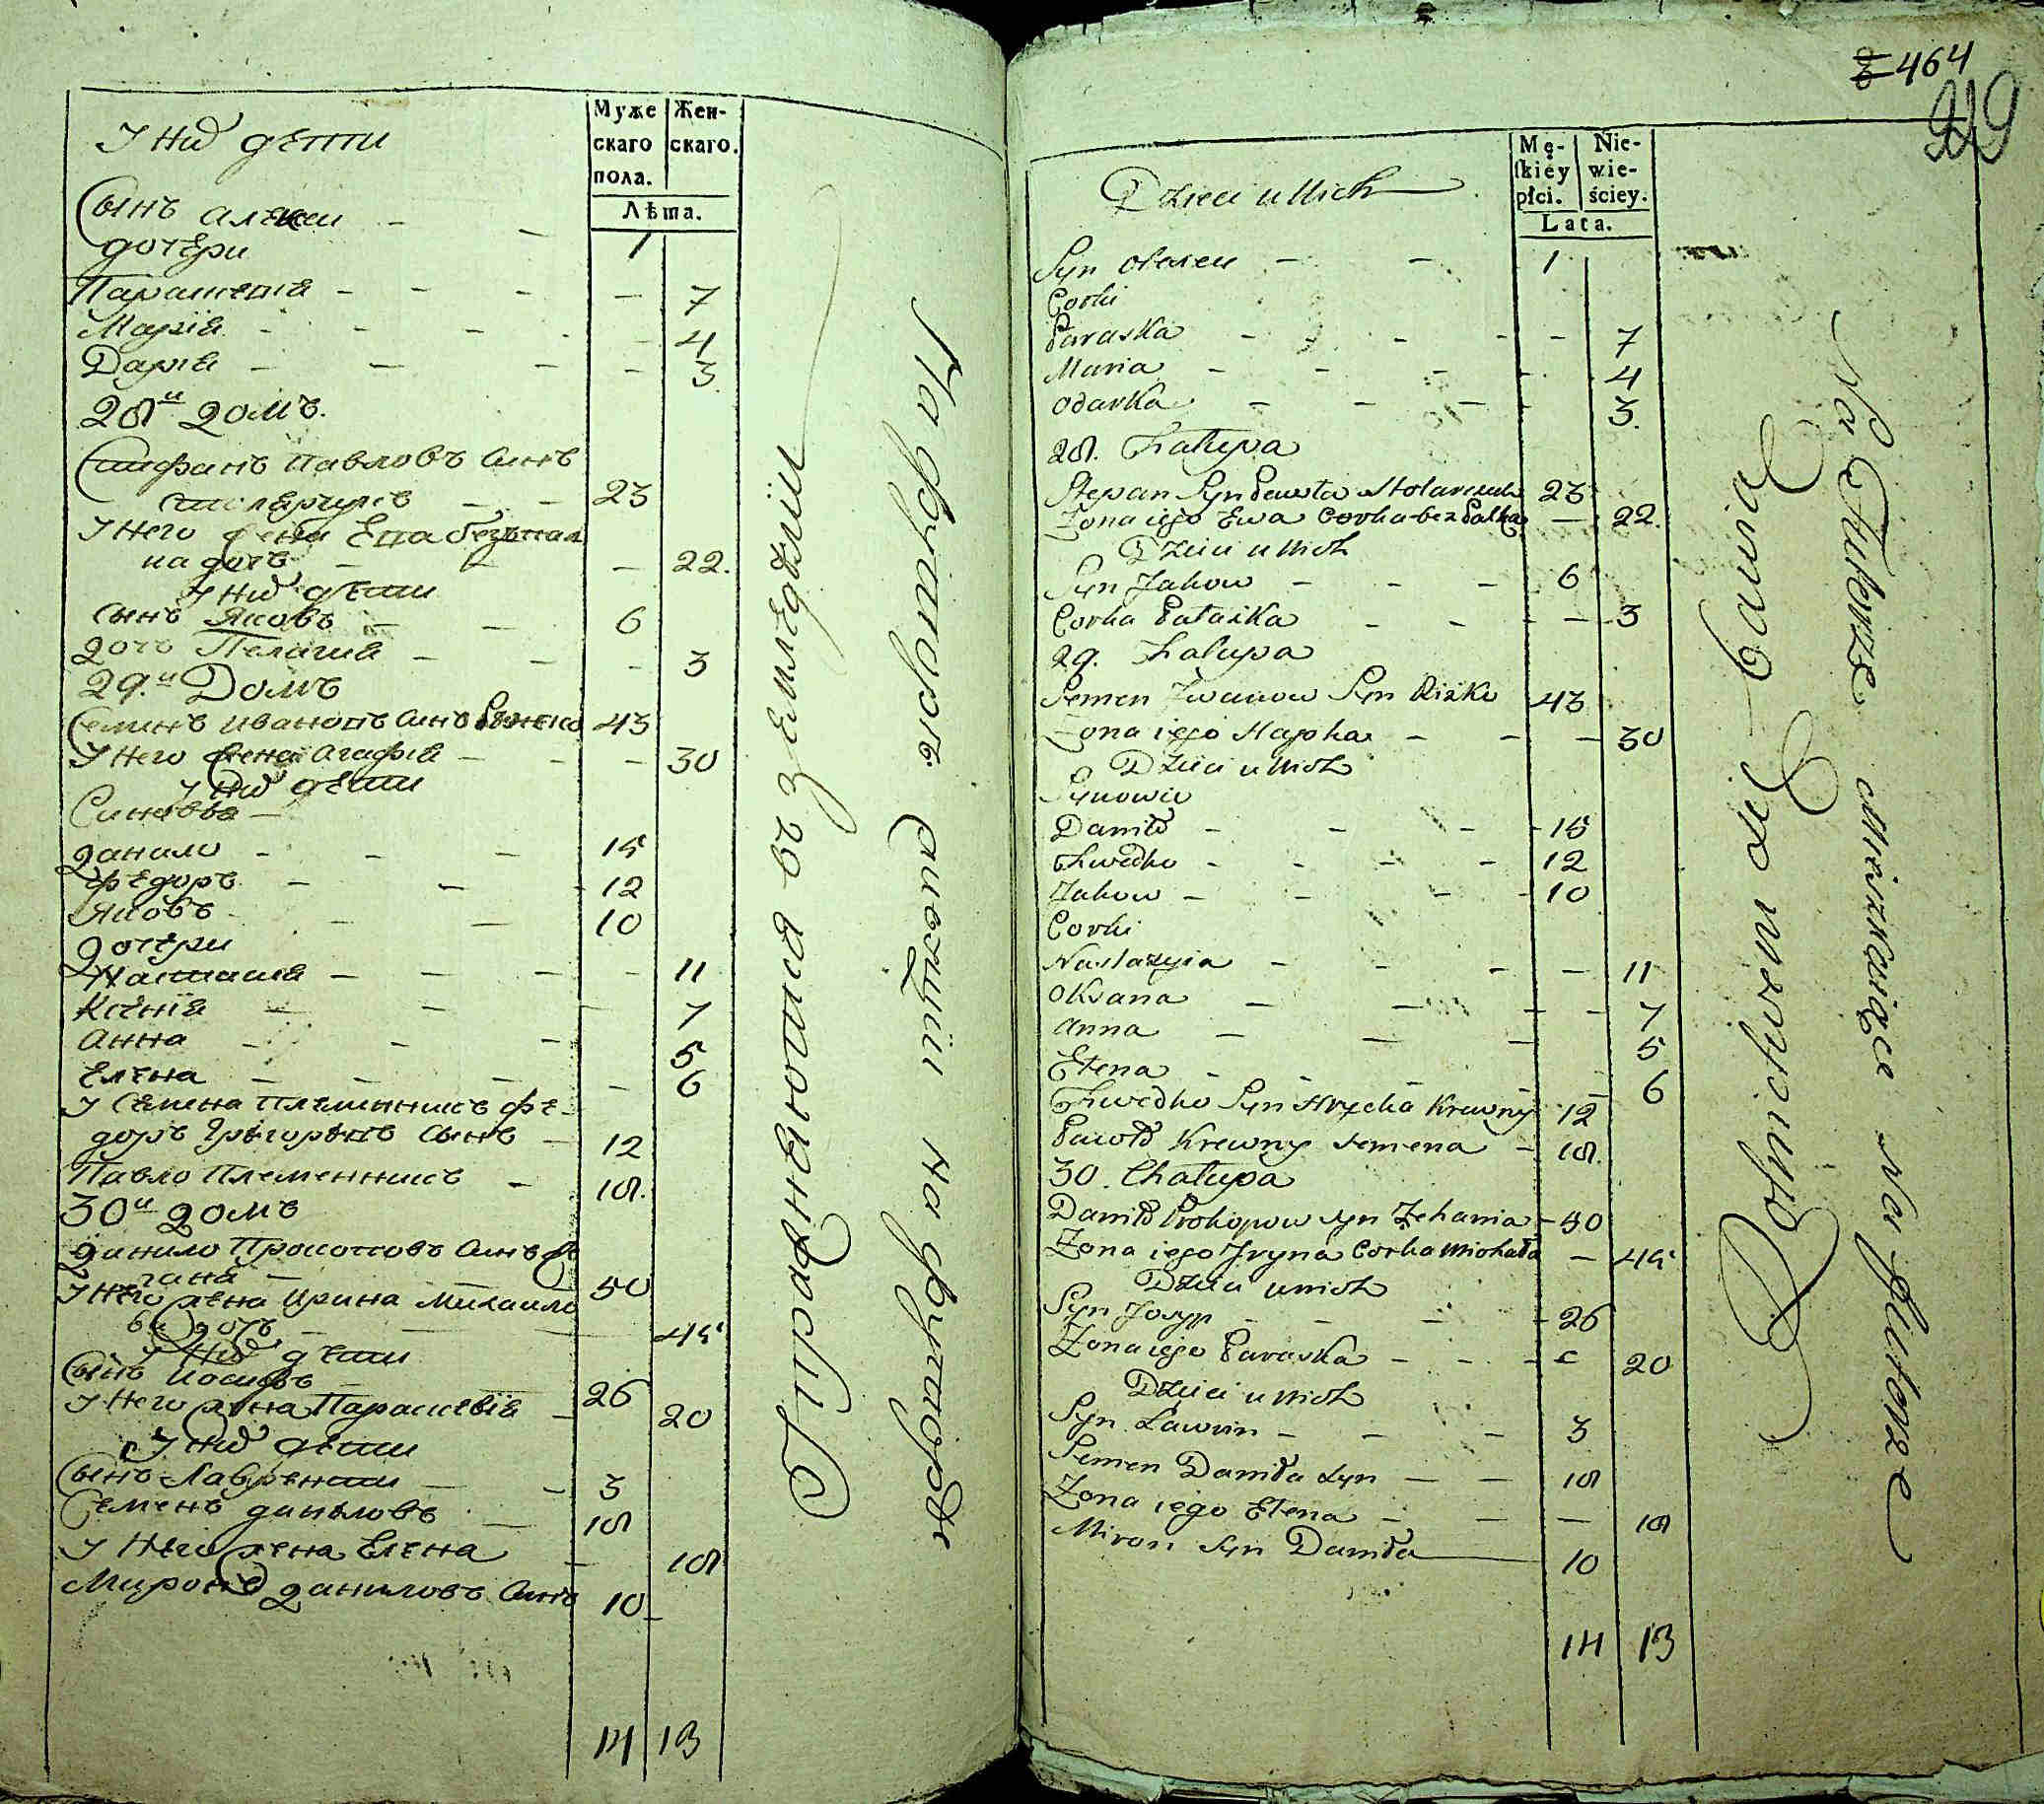 Муже
скаго
пола.
Жен-
скаго.
Лѣта.
У них дети
Сынъ Алексеи - - 1
дочери
Параскевiя - - - - 7
Марiя - - - - 4
Дарiя - - - - 3
28й домъ.
Стефанъ Павловъ Синъ
столярчукъ - - 23
У Него жена Ева безпал
на дочь - - 22.
У них дети
Сынъ Яковъ - - 6
дочь Пелагiя - - - 3
29.й Домъ
Семенъ Ивановъ Синъ 43
У Него жена Агафiя - - - 30
У них дети
Синовья -
данило - - - 15
Федоръ - - - 12
Яковъ - - - 10
дочери
Настасiя - - - - 11
Ксенiя - - - 7
Анна - - - 5
Елена - - - - 6
У Семена Племенникъ Фе-
доръ Григорьевъ Сынъ - 12
Павло Племенникъ - 18.
30й домъ
данило Прокоповъ Синъ Же
гана - 50
У Него жена Ирина Михаило
ва дочь - - 45
У них дети
Сынъ Иосифъ - 26
У Него жена Параскевiя - 20
У них дети
Сынъ Лаврентiи - - 3
Семенъ даниловъ - 18
У Него жена Елена - 18
Миронъ даниловъ Синъ 10
14 13
Упражняются въ земледѣлiи
На футорѣ живущiи на футорѣ
464
Mę-
skiéy
płci.
Nie-
wie-
ściey.
Lata.
Dzieci u Nich
Syn Olexeu - - 1
Corki
Paraska - - - - 7
Maria - - - - 4
Odarka - - - - 3.
28. Chałupa
Stepan Syn Pawła Stolarczuk 23
Zona iego Ewa Corka bezPalka - 22.
Dzieci u Nich
Syn Jakow - - - 6
Corka Pałażka - - - - 3
29. Chałupa
Semen Jwanow Syn Rizko 43
Zona iego Hapka - - - 30
Dzieci u Nich
Synowie
Daniło - - - - 15
Chwedko - - - - 12
Jakow - - - - 10
Corki
Nastazyia - - - - 11
Oksana - - - - 7
Anna - - - 5
Elena - - - - 6
Chwedko Syn Hrycka Krewny 12
Pawło Krewny Semena - 18.
30. Chałupa
Daniło Prokopow syn Żehania - 50
Zona iego Jryna Corka Michała - 45
Dzieci u nich
Syn Josyp - - - - 26
Zona iego Paraska - - - 20
Dzieci u Nich
Syn Ławrin - - - 3
Semen Daniła Syn - - 18
Zona iego Elena - - - 18
Miron Syn Daniła - 10
14 13
Rolnictwem się bawią
Na Futorze Mieszkaiące Na Futorze